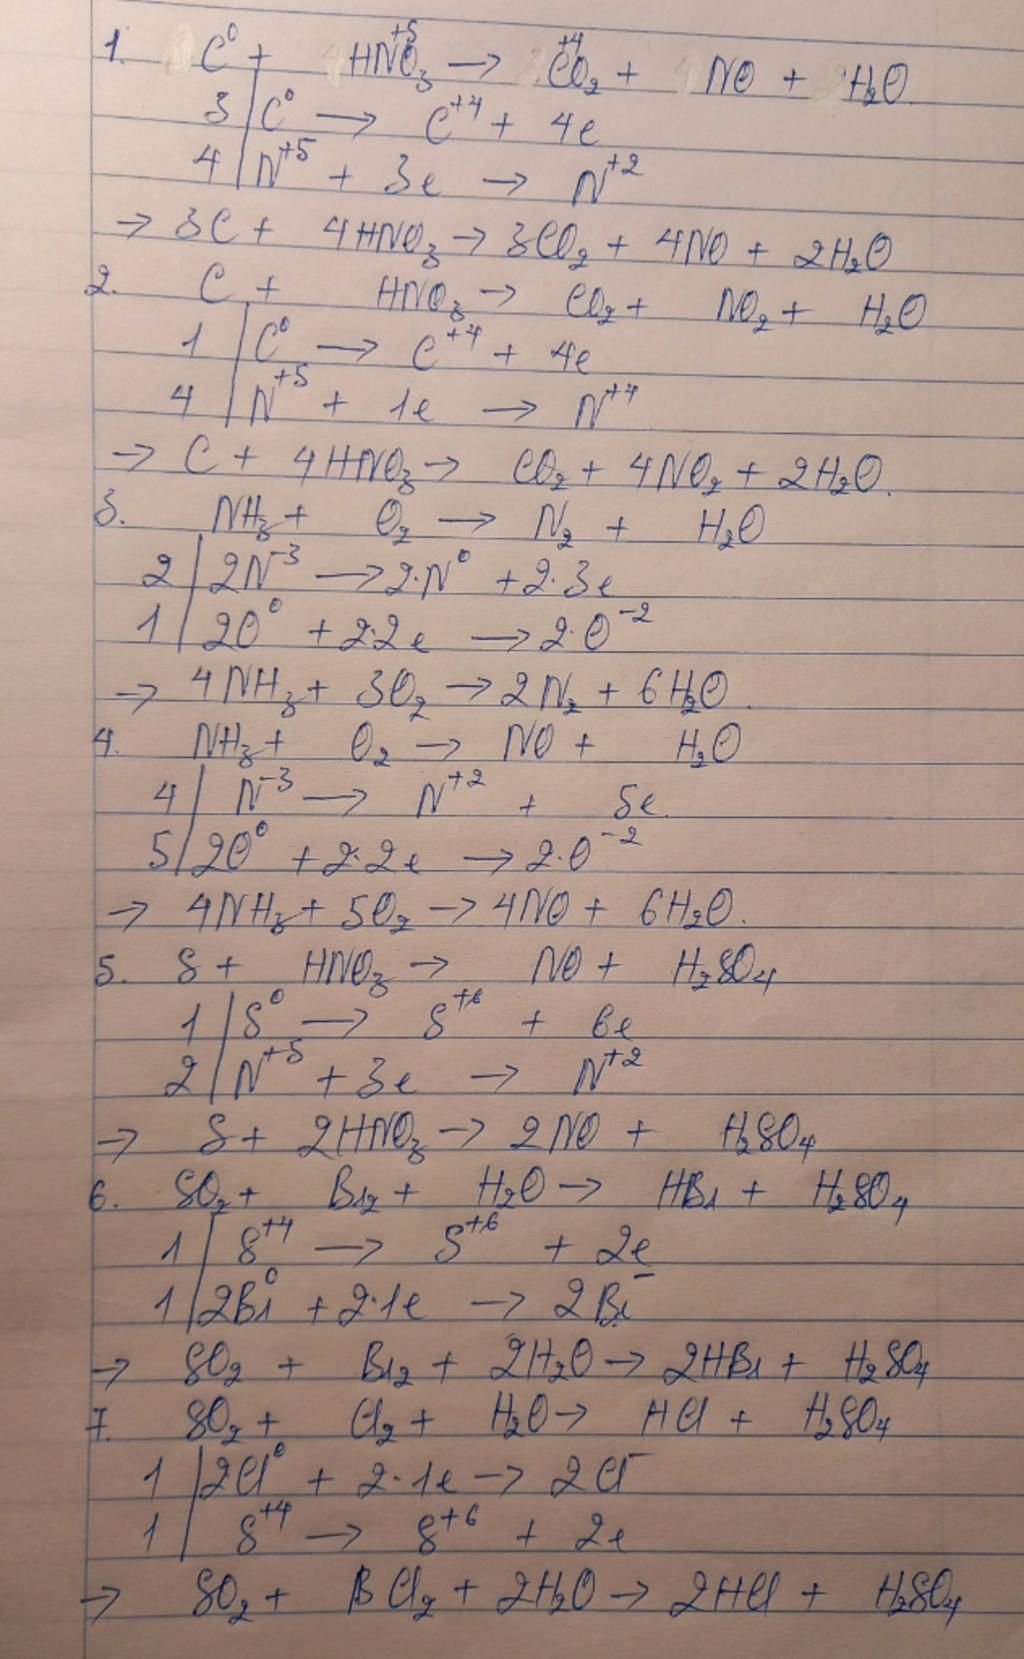 1. C⁰ + HN⁺⁵O₃ → C⁺⁴O₂ + NO + H₂O
3 | C⁰ → C⁺⁴ + 4e
4 | N⁺⁵ + 3e → N⁺²
→ 3C + 4HNO₃ → 3CO₂ + 4NO + 2H₂O
2. C + HNO₃ → CO₂ + NO₂ + H₂O
1 | C⁰ → C⁺⁴ + 4e
4 | N⁺⁵ + 1e → N⁺⁴
→ C + 4HNO₃ → CO₂ + 4NO₂ + 2H₂O.
3. NH₃ + O₂ → N₂ + H₂O
2 | 2N⁻³ → 2·N⁰ + 2·3e
1 | 2O⁰ + 2·2e → 2·O⁻²
→ 4NH₃ + 3O₂ → 2N₂ + 6H₂O.
4. NH₃ + O₂ → NO + H₂O
4 | N⁻³ → N⁺² + 5e.
5 | 2O⁰ + 2·2e → 2·O⁻²
→ 4NH₃ + 5O₂ → 4NO + 6H₂O.
5. S + HNO₃ → NO + H₂SO₄
1 | S⁰ → S⁺⁶ + 6e
2 | N⁺⁵ + 3e → N⁺²
→ S + 2HNO₃ → 2NO + H₂SO₄
6. SO₂ + Br₂ + H₂O → HBr + H₂SO₄
1 | S⁺⁴ → S⁺⁶ + 2e
1 | 2Br⁰ + 2·1e → 2Br⁻
→ SO₂ + Br₂ + 2H₂O → 2HBr + H₂SO₄
7. SO₂ + Cl₂ + H₂O → HCl + H₂SO₄
1 | 2Cl⁰ + 2·1e → 2Cl⁻
1 | S⁺⁴ → S⁺⁶ + 2e
→ SO₂ + BCl₂ + 2H₂O → 2HCl + H₂SO₄